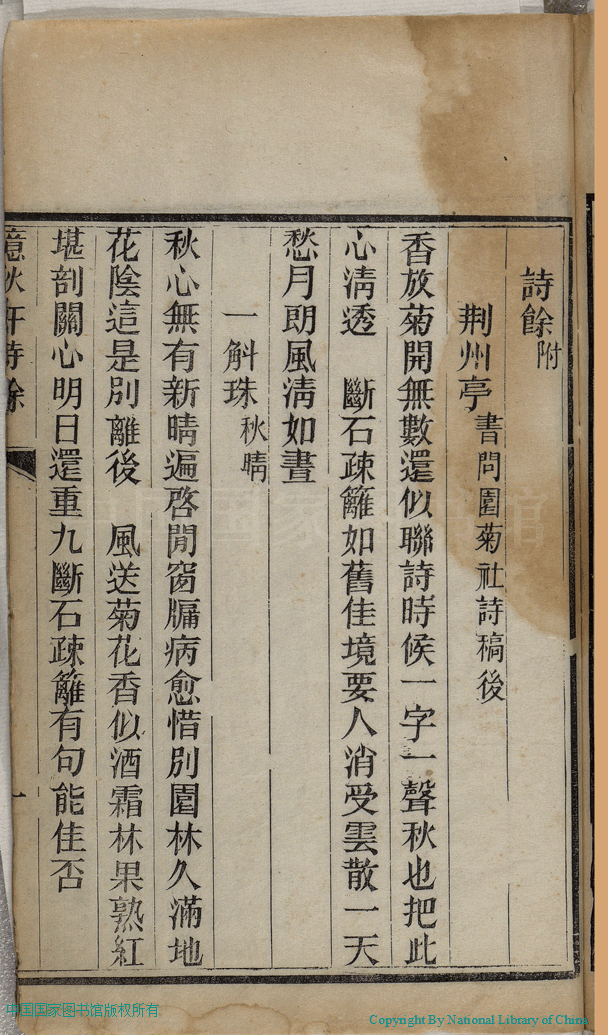 詩餘附
荆州亭書問園菊社詩稿後
香放菊開無數還似聯詩時候一字一聲秋也把此
心淸透　斷石疎籬如舊佳境要人消受雲散一天
愁月朗風淸如晝
一斛珠秋晴
秋心無有新晴遍啓閒窗牖病愈惜別園林久滿地
花陰這是別離後　風送菊花香似酒霜林果熟紅
堪剖關心明日還重九斷石疎籬有句能佳否
意秋軒詩餘
一
中国国家图书馆版权所有
Copyright By National Library of China